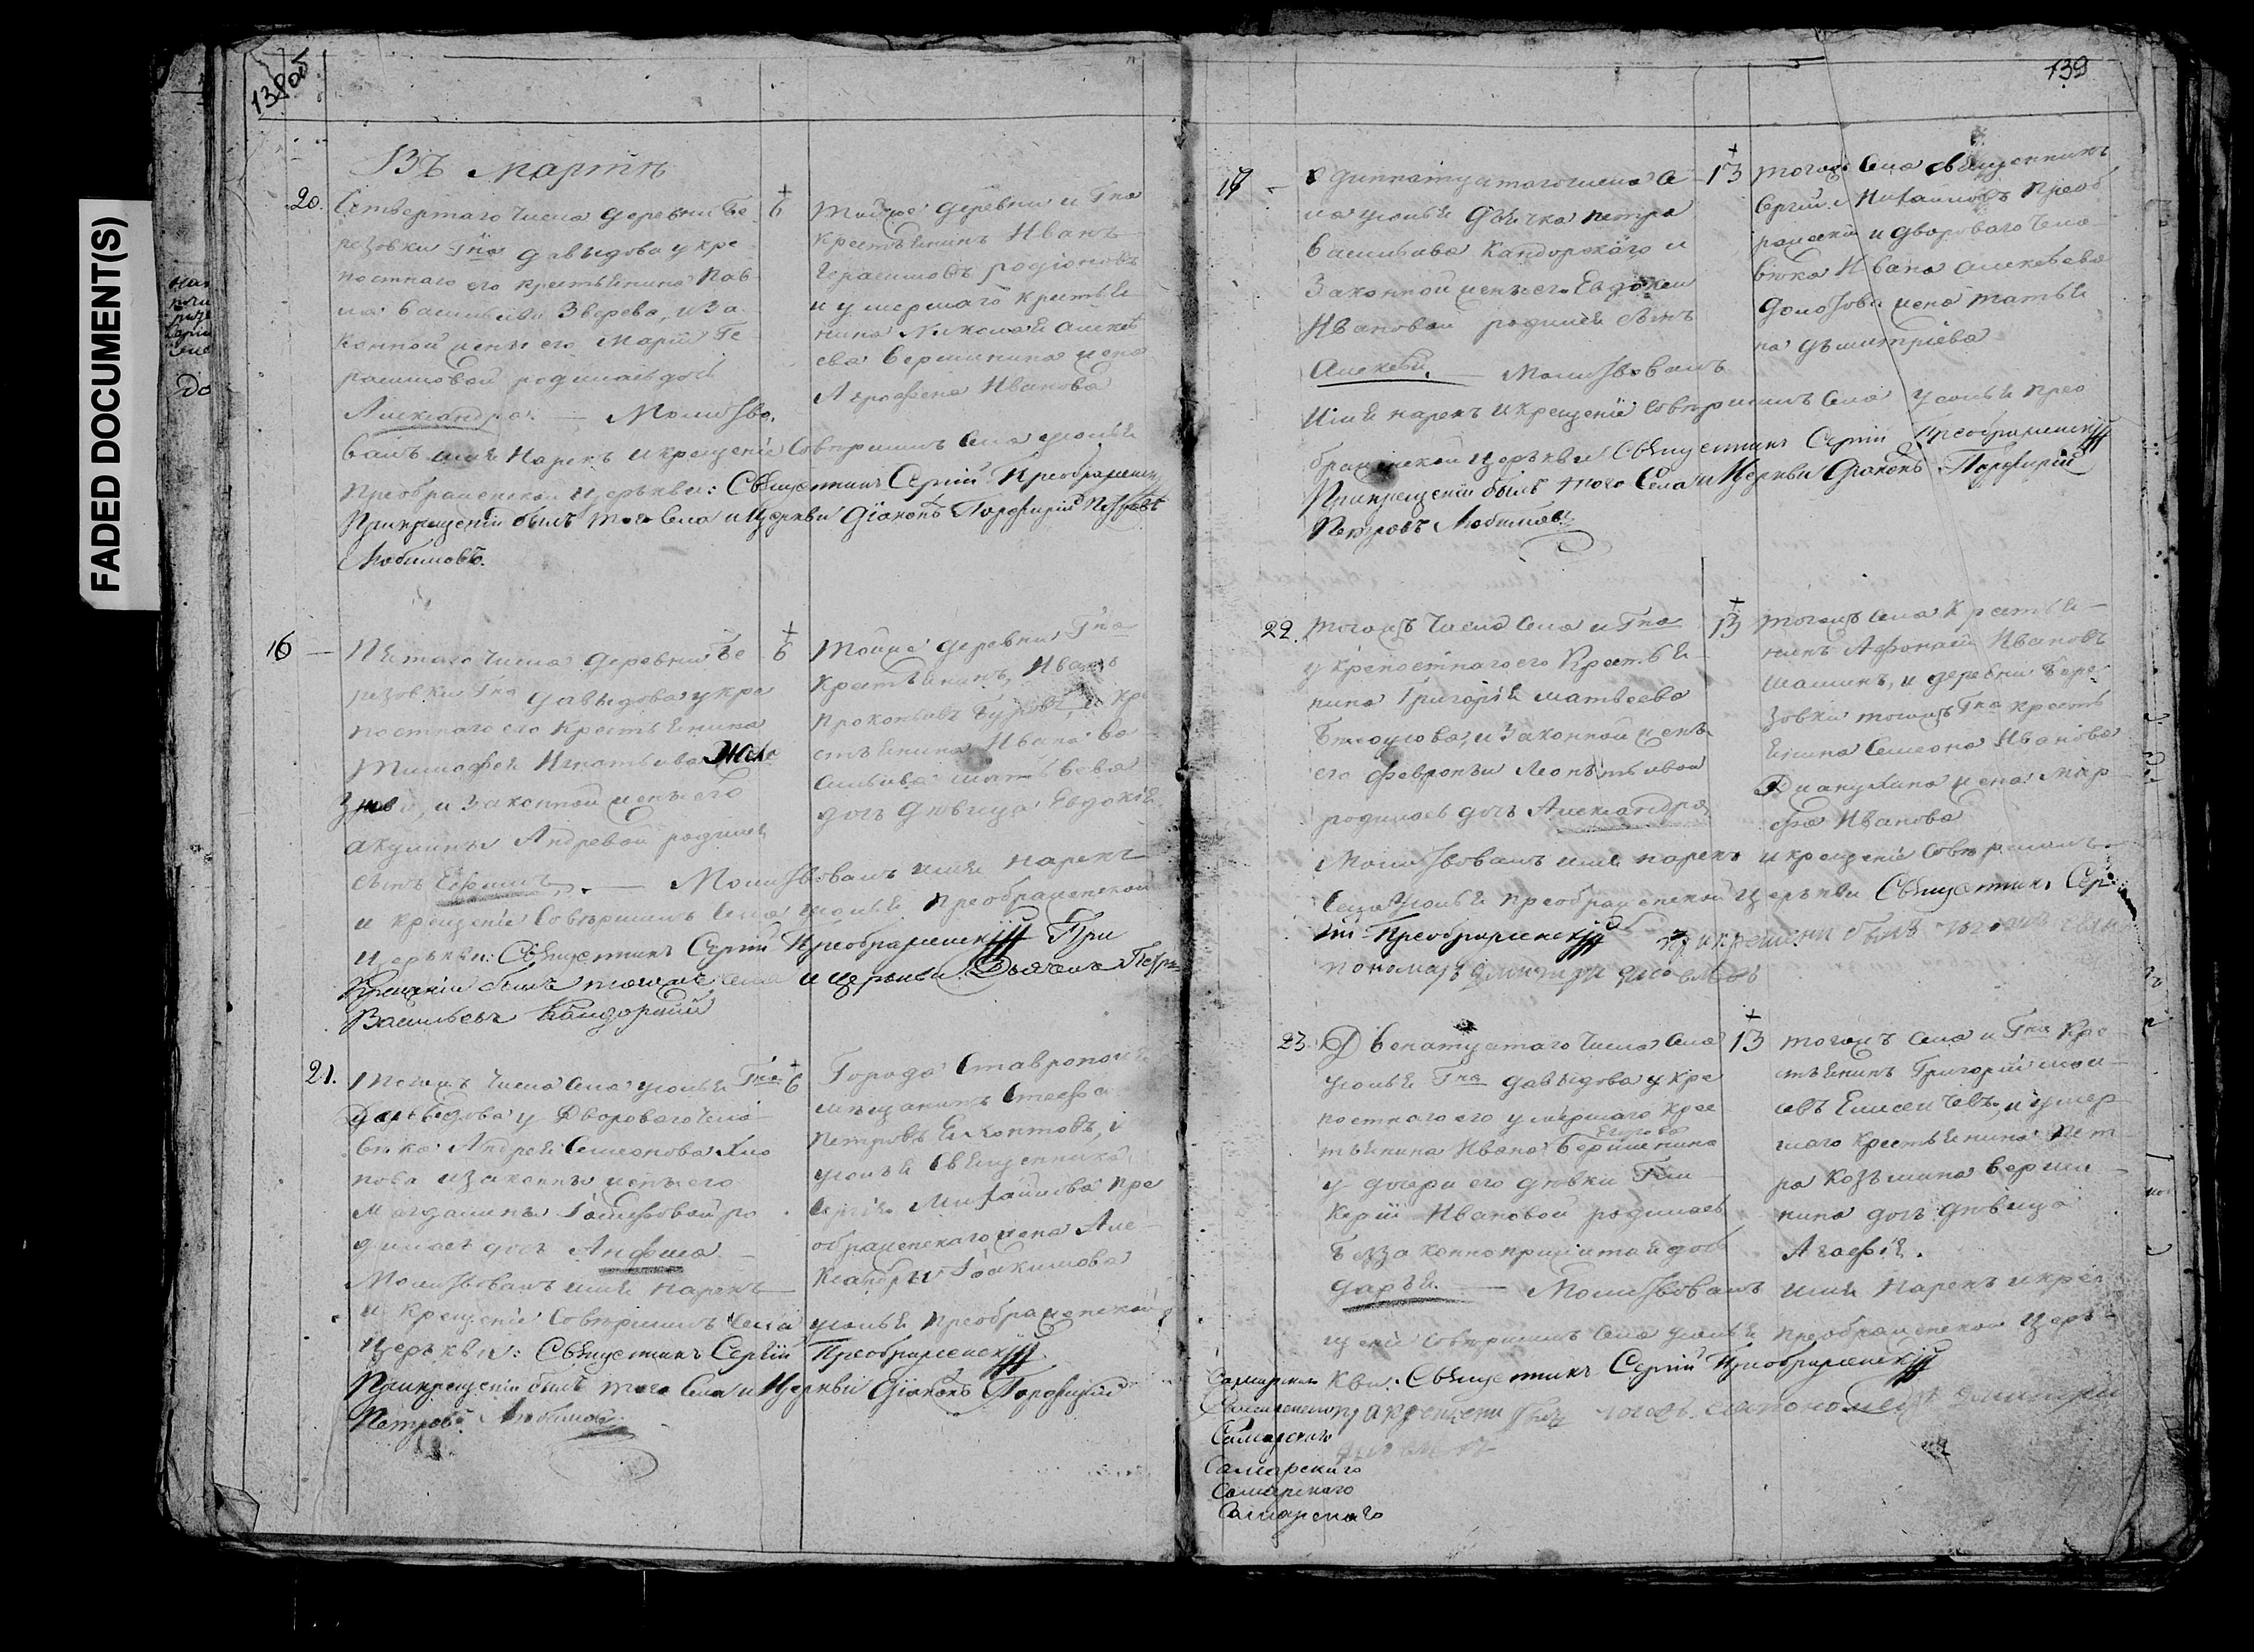 FADED DOCUMENT(S)
138об
Въ мартѣ
20.
Четвертаго числа деревни Бе
резовки Гна Давыдова у кре
постнаго его крестьянина Пав
ла Васильева Зверева, и За
конной жены его Марiи Ге
расимовой родилась дочь
Александра. — Молитво,
валъ имя нарекъ и крещенiе совершилъ села усолья
Преображенской церькви: Священникъ Сергiй Преображенскiй
При крещенiи былъ того села и Церкви Дiаконъ Порфирiй Петровъ
Любимовъ.
6
тойже деревни и Гна
крестьянинъ Иванъ
Герасимовъ родiоновъ
и умершаго крестья
нина Николая алексѣ
ева Вершинина жена
Аграфена Иванова
16 —
Пятаго числа деревни Бе
резовки Гна Давыдова у кре
постнаго его крестьянина
Тимофея Игнатьева
и Законной жены его
акулины Андревой родился
сынъ Ефимъ. — Молитвовалъ имя нарекъ
и крещенiе совершилъ села усолья преображенской
церькви: Священникъ Сергiй Преображенскiй При
Крещенiи былъ тогожъ села и церькви Дьячекъ Петръ
Васильевъ Кандорскiй
6
тойже деревни Гна
крестьянинъ, Иванъ
прокопьевъ и кре
стьянина Ивана Ва
сильева матвѣева
дочь дѣвица Евдокiя
21.
Тогожъ числа села усолья Гна
Давыдова у Двороваго чело
вѣка Андрея Семенова Хло
пова и законны жены его
Магдалины ро
дилась дочь Анфиса —
Молитвовалъ имя нарекъ
и крещенiе совершилъ села усолья преображенской
Церькви: Священникъ Сергiй Преображенскiй
При крещенiи былъ того села и Церкви Дiаконъ Порфирiй
Петровъ Любимовъ
6
Города Ставрополя
мѣщанинъ Стефа
Петровъ и
усолья Священника
Сергiя Михайлова Пре
ображенскаго жена Але
ксандра Iоакимова
139
19 —
Одиннатцатаго числа се
ла усолья дьячка петра
Васильева Кандорскаго и
Законной жены его Евдокеи
Ивановой родился сынъ
Алексѣй. — Молитвовалъ
имя нарекъ и крещенiе совершилъ села усолья прео
браженской церькви Священникъ Сергiй Преображенскiй
При крещенiи былъ того Села и Церкви Дiаконъ Порфирiй
Петровъ Любимовъ
13
тогожъ села священникъ
Сергiй Михайловъ Преоб
раженскiй и двороваго чело
вѣка Ивана алексѣева
жена татья
на дьмитрiева
22.
тогожъ числа села и Гна
у крепостнаго его крестья
нина Григорiя матвѣева
Белоусова, и Законной жены
его февроньи Леонтьивой
родилась дочь Александра
Молитвовалъ имя нарекъ и крещенiе совершилъ
Села усолья преображенской церькви Священникъ Сер
гiй Преображенскiй при крещени былъ тогожъ села
пономарь дмитри
13
тогожъ села крестья
нинъ Афонасiй Ивановъ
шашинъ, и деревни Бере
зовки тогожъ Гна кресть
янина Семеона Иванова
жена Мар
фа Иванова
23.
Двенатцатаго числа села
усолья Гна Давыдова у кре
постнаго его умершаго крес
тьянина Ивана Егорова Вершинина
у дочери его дѣвки Гли
керiи Ивановой родилась
безаконноприжитая дочь
Дарья — Молитвовалъ имя нарекъ и кре
щенiе совершилъ села усолья преображенской церь
кви: Священникъ Сергiй Преображенскiй
при крещени былъ тогожъ села пономарь дмитри
13
тогожъ села и Гна кре
стьянинъ Григорiй мои
сѣвъ Елисеичевъ, и умер
шаго крестьянина Пет
ра Козьмина Верши
нина дочь дѣвица
Агафiя.
Самарскаго
Самарскаго
Самарскаго
Самарскаго
Самарскаго